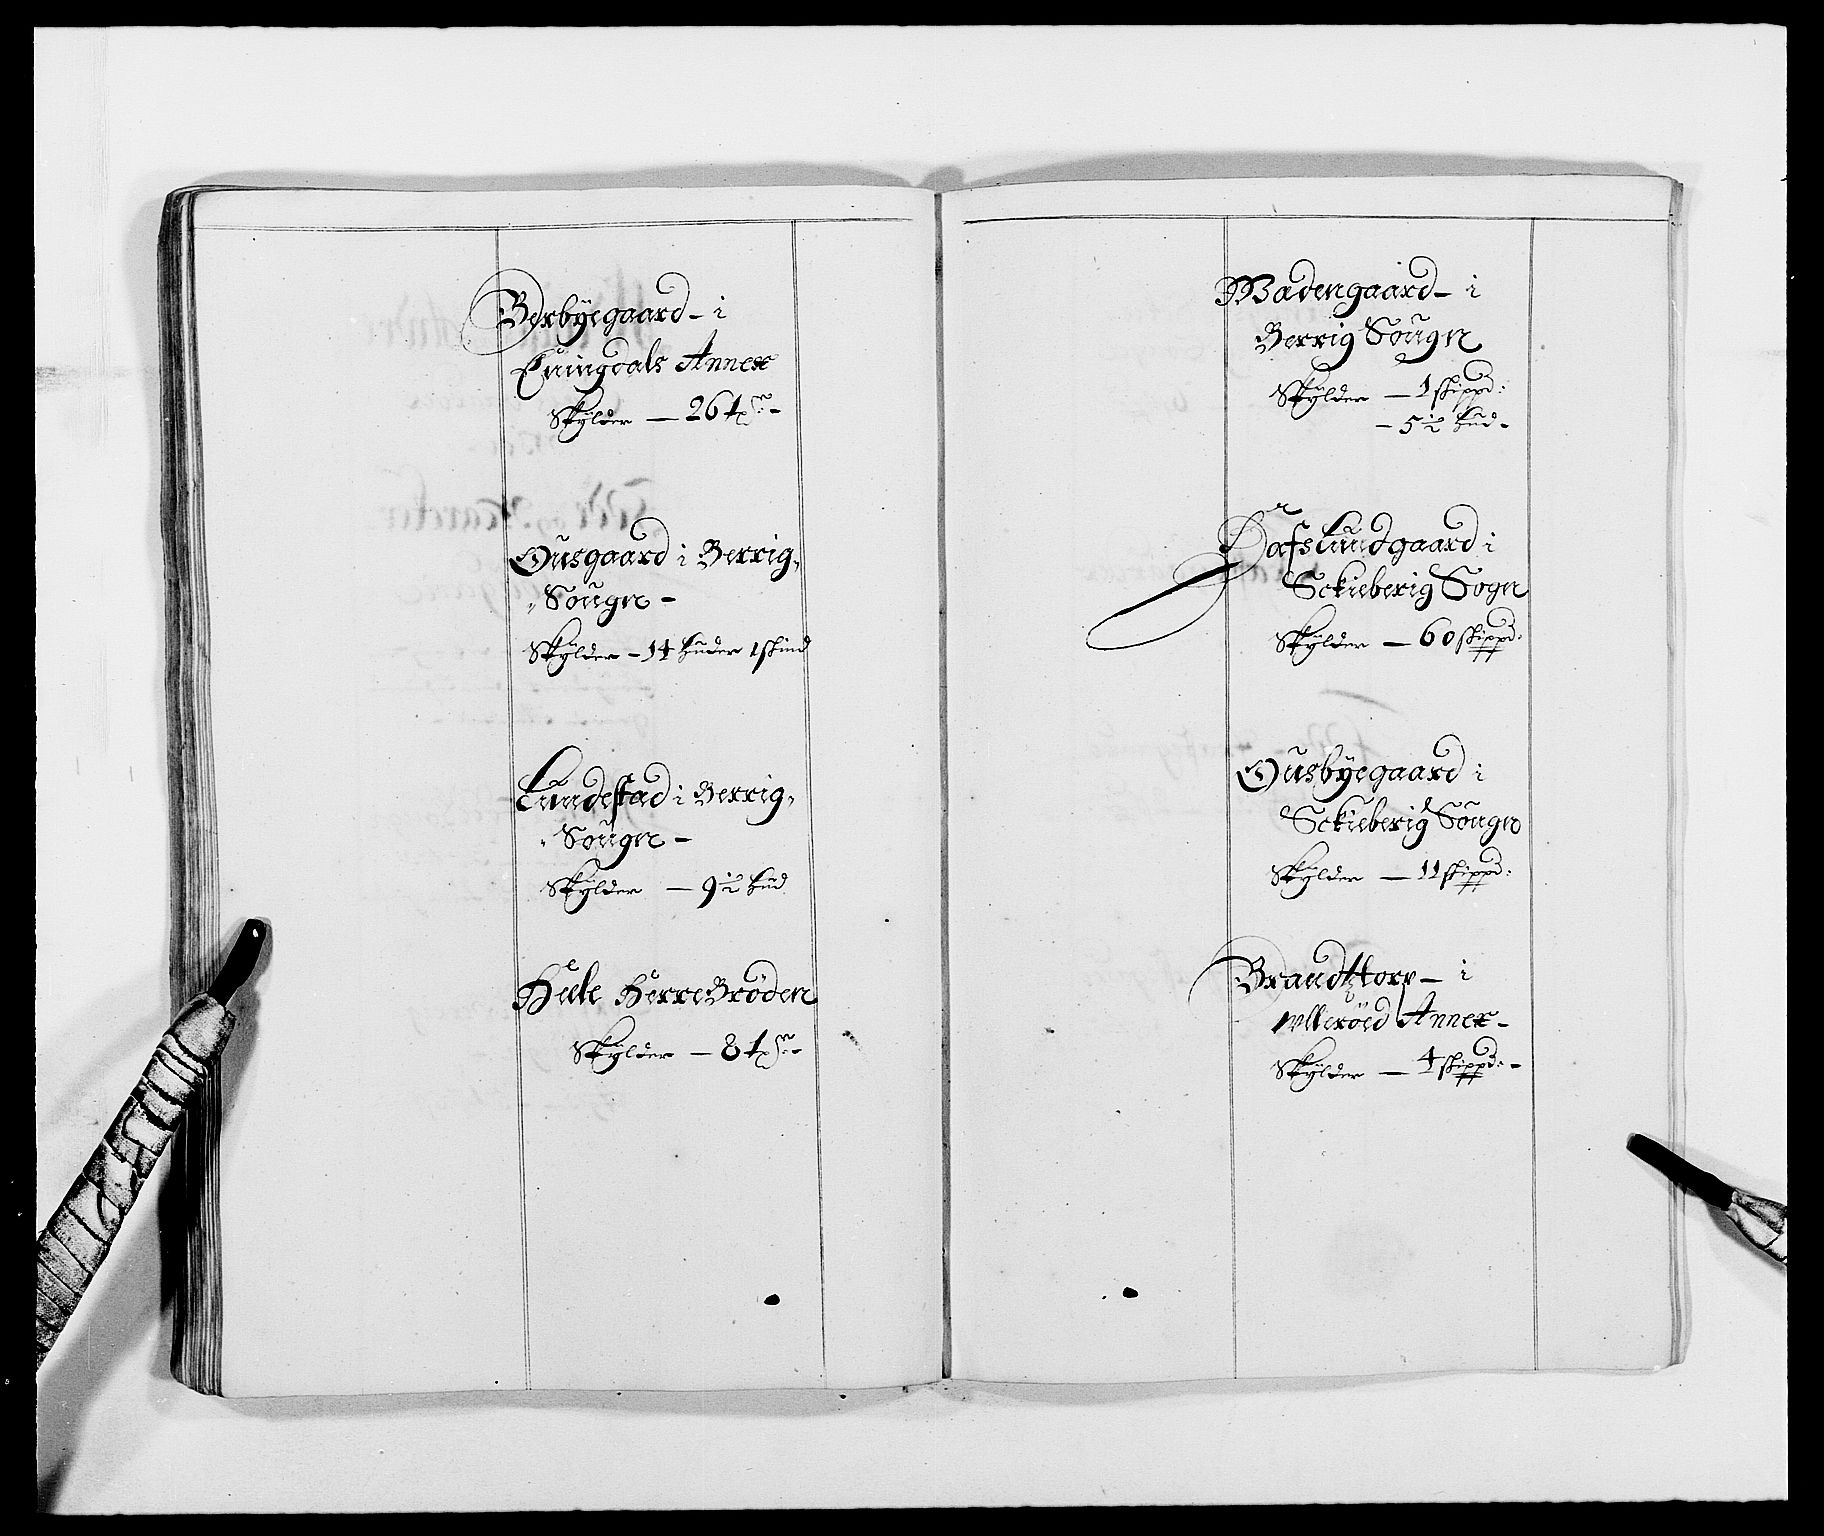 Berbyegaard - i
Eningdals Annex
Skylder — 26 tr:
Ousgaard i Berrig,
Sougn -
Skylder - 14 huder 1 skind
Lundestad i Berrig,
Sougn -
Skylder — 9½ hud
Hele HerreBröden
Skylder — 8 tr: -
Wadengaard - i
Berrig Sougn
Skylder — 1 skippd:
- 5½ hud -
Hafslundgaard i
Sckieberig Sogn
Skylder — 60 skippd:
Ousbyegaard i
Sckieberig Sougn
Skylder — 11 skippd:
Brandttorp - i
Ulleröed Annex -
Skylder — 4 skippd: -